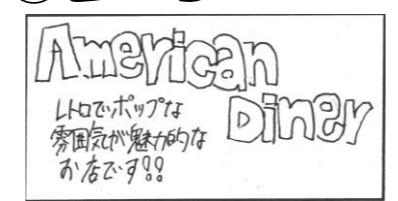 American
Diner
レトロでポップな
雰囲気が魅力的な
お店です!!